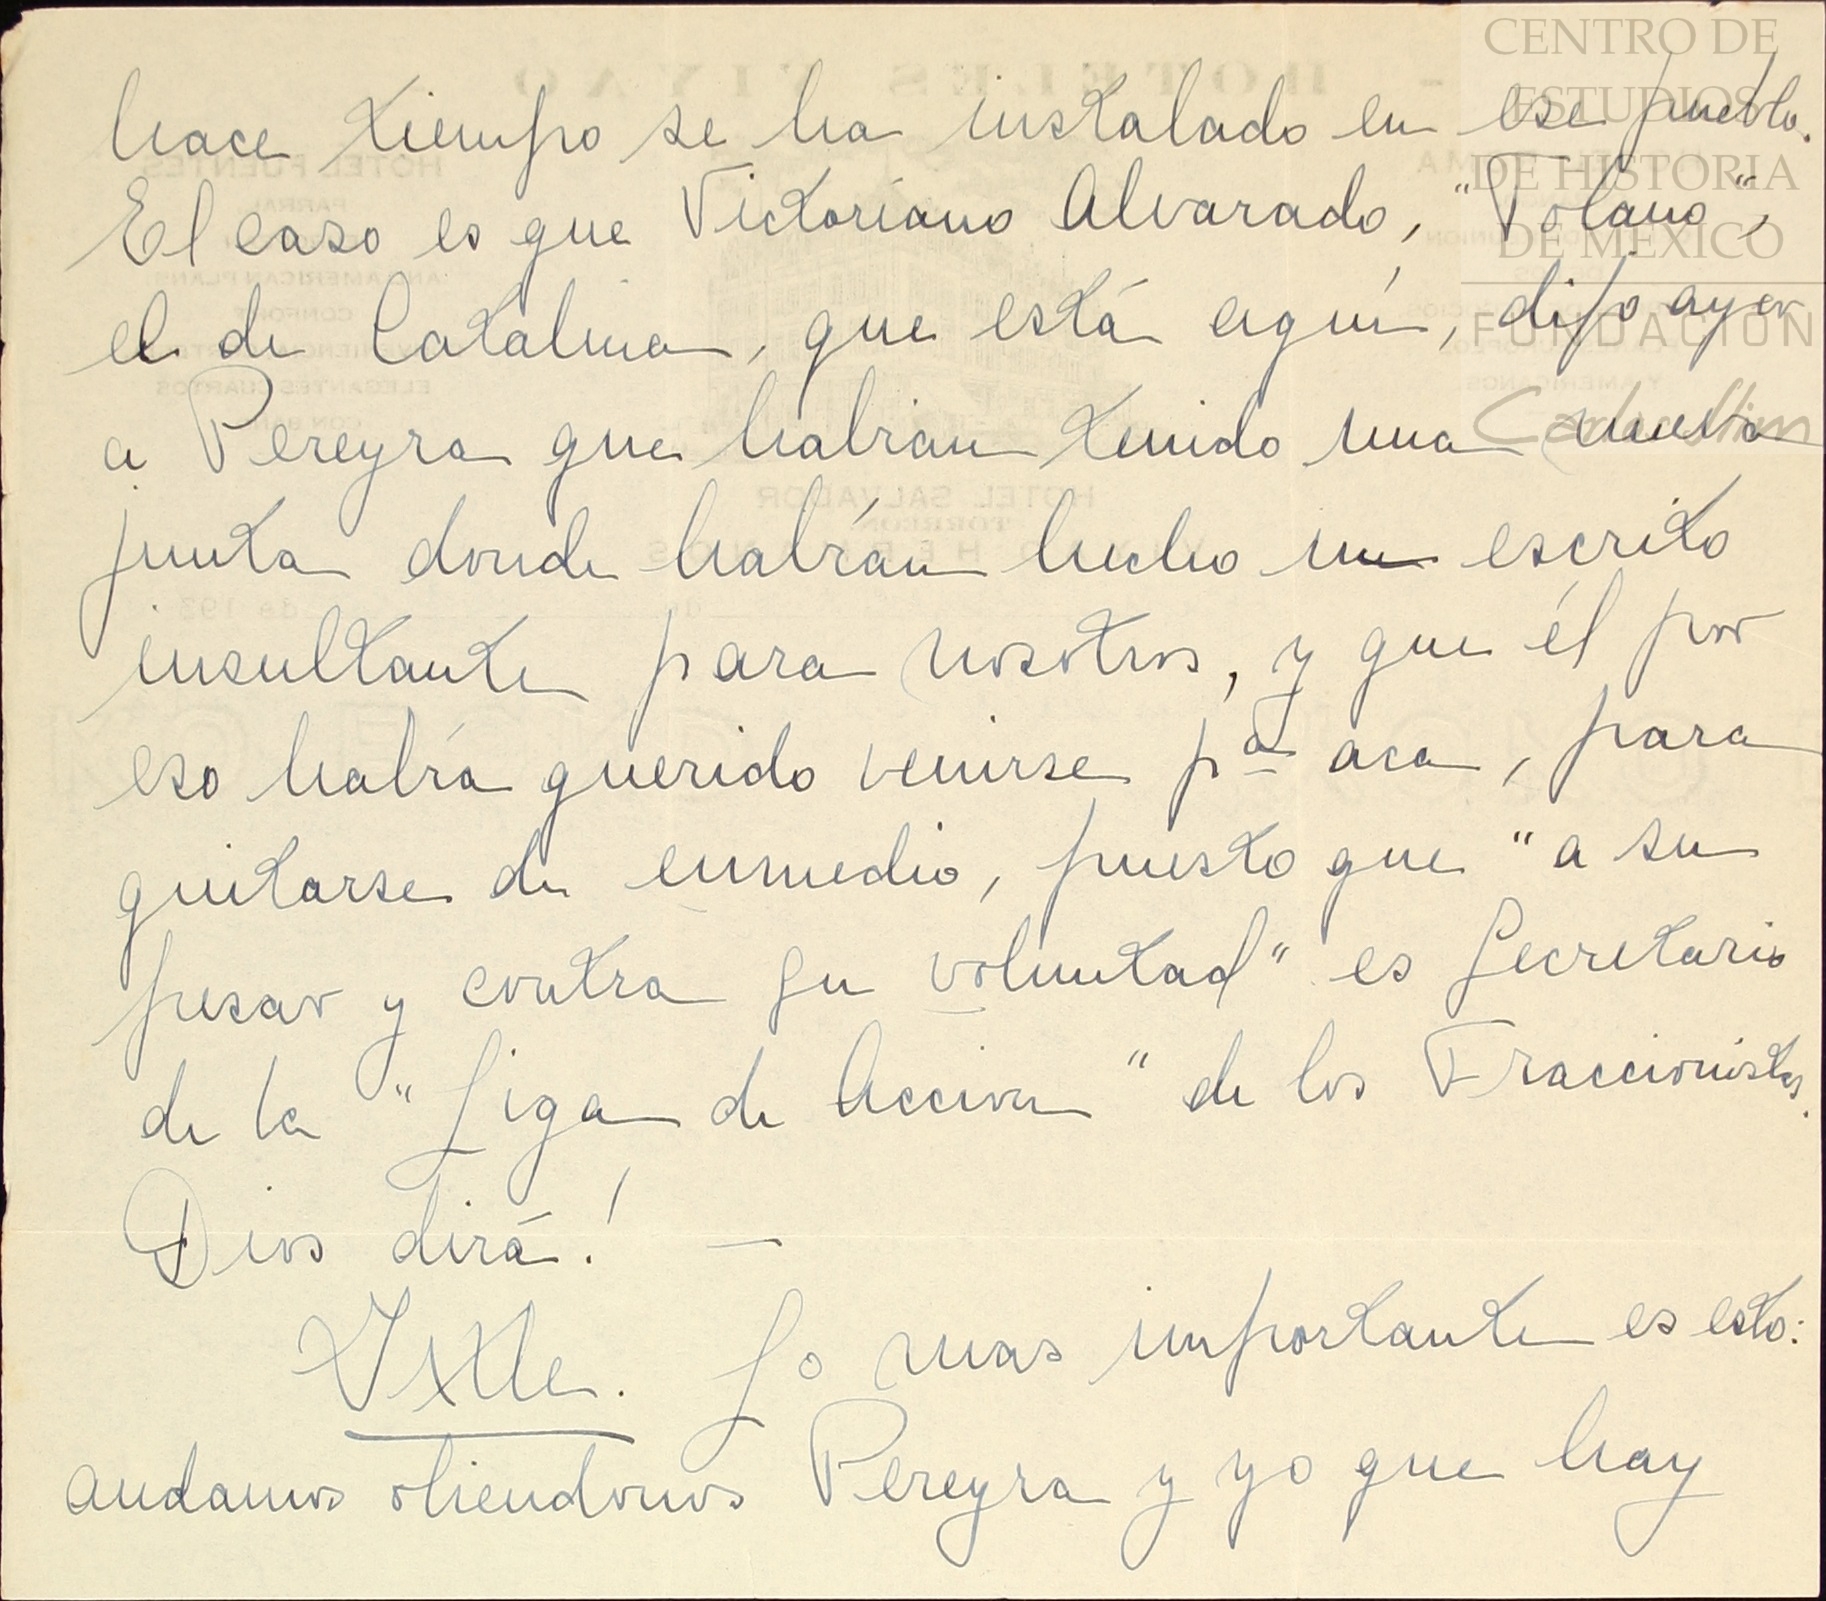 hace tiempo se ha instalado en ese pueblo.
El caso es que Victoriano Alvarado, "Tolano",
el de Catalina, que está aquí, dijo ayer
a Pereyra que habian tenido una nueva
junta donde habían hecho un escrito
insultante para nosotros, y que él por
eso había querido venirse pª aca, para
quitarse de enmedio, puesto que "a su
pesar y contra su voluntad" es Secretario
de la "Liga de Accion" de los Fraccionistas.
Dios dirá! —
Ixtle. Lo mas importante es esto:
andamos oliendonos Pereyra y yo que hay
CENTRO DE
ESTUDIOS
DE HISTORIA
DE MEXICO
FUNDACIÓN
HOTEL SALVADOR
TORREON
HOTEL FUENTES
PARRAL
ELEGANTES CUARTOS